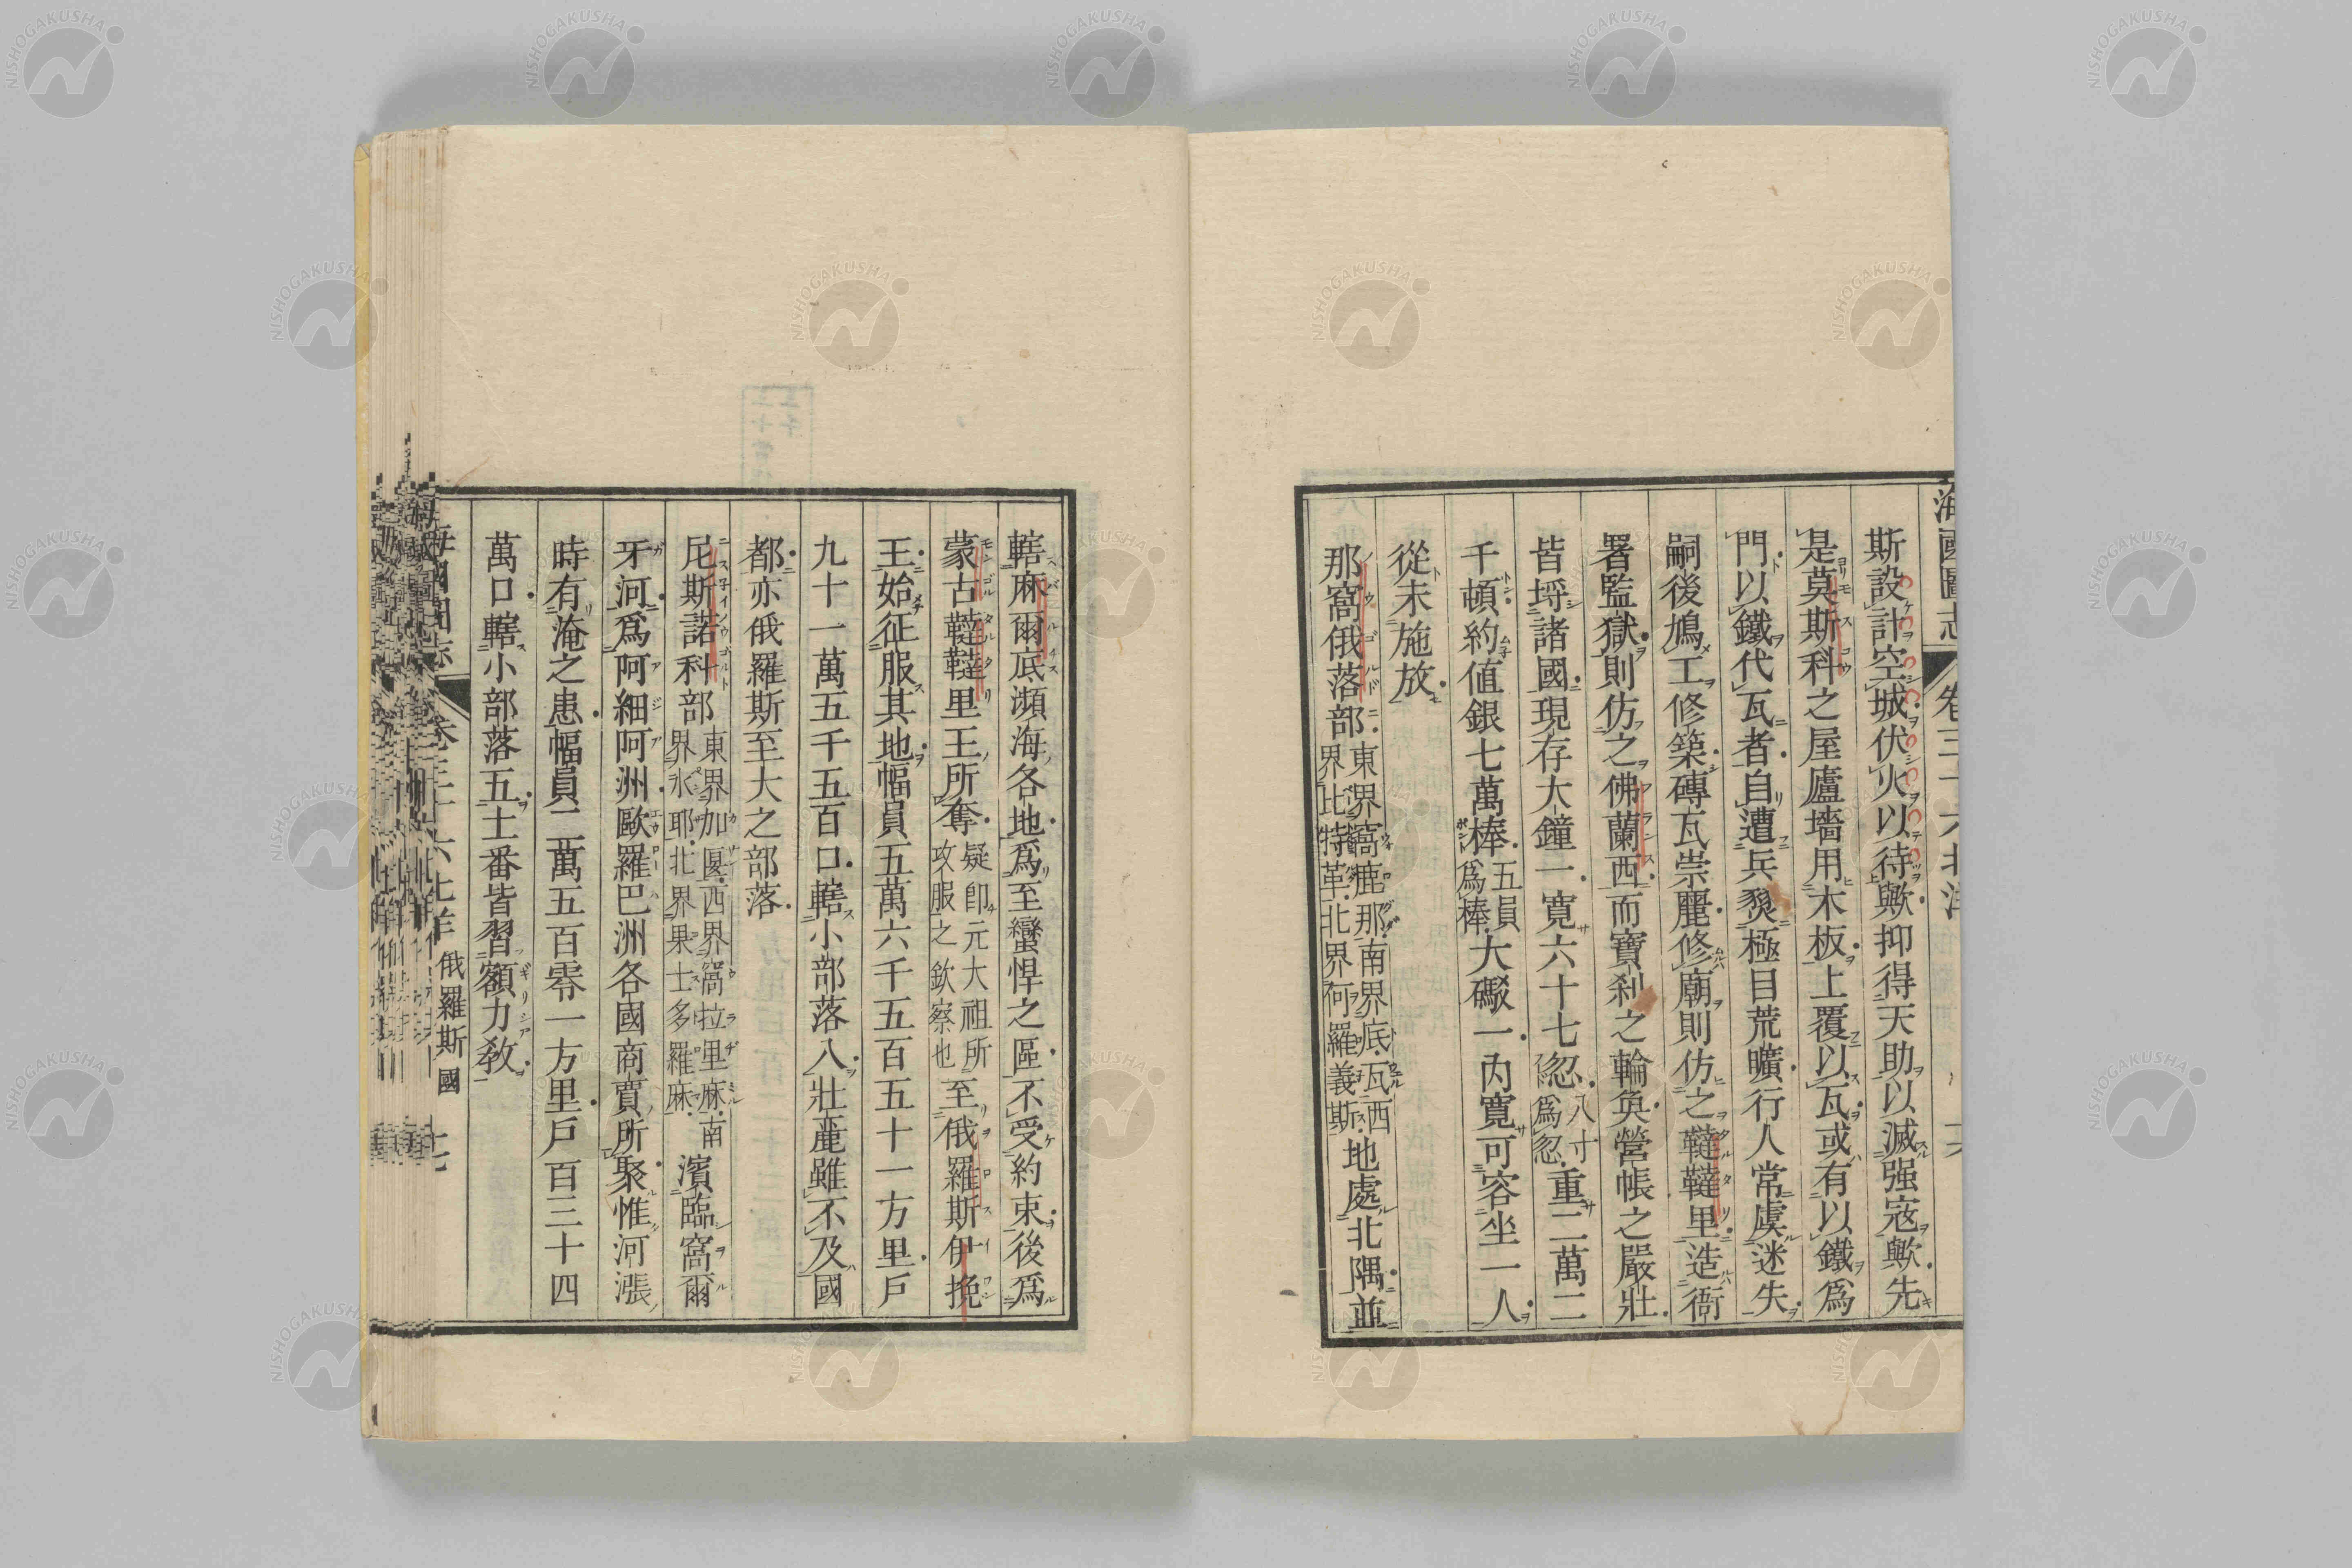 海國圖志 卷三十六 北洋
斯設計空城伏火以待歟抑得天助以滅强寇歟先
是莫斯科之屋廬墻用木板上覆以瓦或有以鐵爲
門以鐵代瓦者自遭兵燹極目荒曠行人常虞迷失
嗣後鳩工修築磚瓦崇麗修廟則仿之韃韃里造衙
署監獄則仿之佛蘭西而寶刹之輪奐營帳之嚴壯
皆埒諸國現存大鐘一寬六十七忽八寸爲忽重二萬二
千頓約値銀七萬棒五員爲棒大礮一内寬可容坐一人
從未施放
那窩俄落部東界窩鹿那南界底瓦西界比特革北界何羅義斯地處北隅並
轄麻爾底瀕海各地爲至蠻悍之區不受約束後爲
蒙古韃韃里王所奪疑卽元大祖所攻服之欽察也至俄羅斯伊挽
王始征服其地幅員五萬六千五百五十一方里戶
九十一萬五千五百口轄小部落八壯麗雖不及國
都亦俄羅斯至大之部落
尼斯諾科部東界加匽西界窩拉里麻南界氷耶北界果士多羅麻濱臨窩爾
牙河爲阿細阿洲歐羅巴洲各國商賈所聚惟河漲
時有淹之患幅員二萬五百零一方里戶百三十四
萬口轄小部落五土番皆習額力敎
海國圖志 卷三十六 北洋 俄羅斯國 七
NISHOGAKUSHA